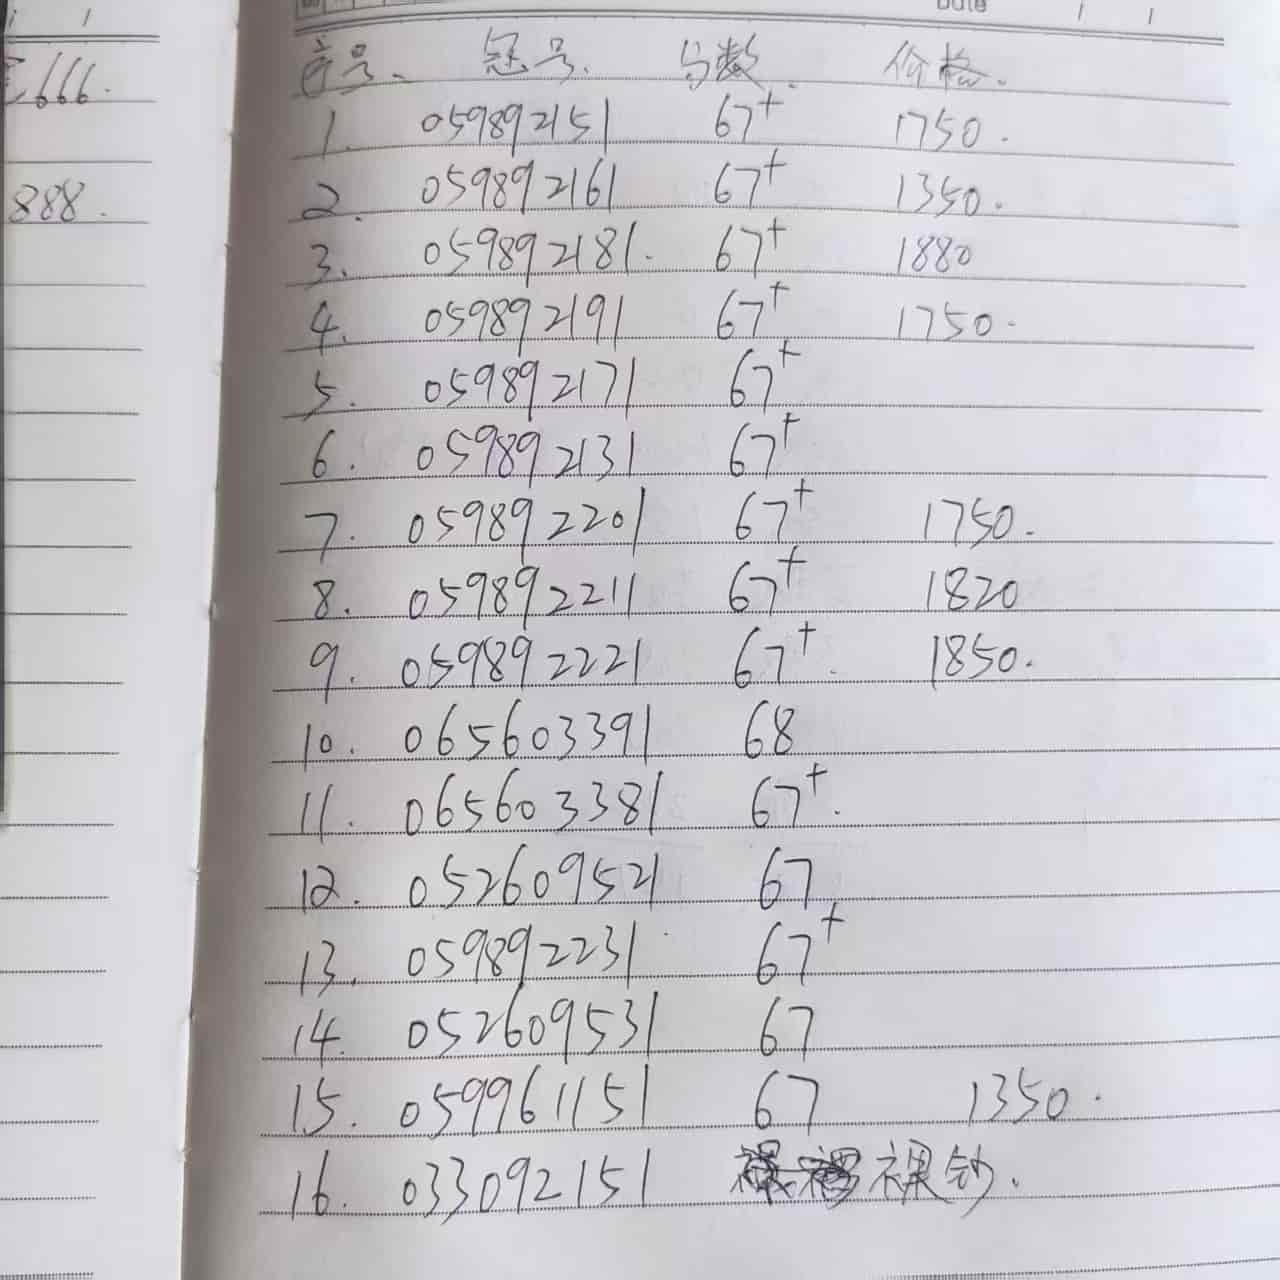 Date
666.
888.
序号、 冠号、 分数、 价格.
1. 059892151 67+ 1750.
2. 059892161 67+ 1350.
3. 059892181. 67+ 1880
4. 059892191 67+ 1750.
5. 059892171 67+
6. 059892131 67+
7. 059892201 67+ 1750.
8. 059892211 67+ 1820
9. 059892221 67+. 1850.
10. 065603391 68
11. 065603381 67+.
12. 052609521 67
13. 059892231 67+
14. 052609531 67
15. 059961151 67 1350.
16. 033092151 裸钞.